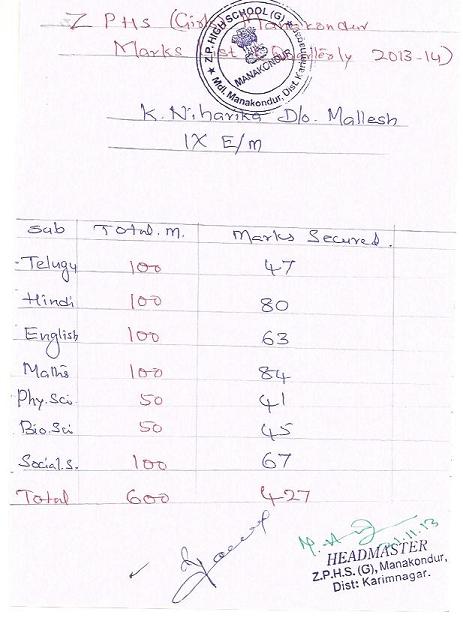 Z P H S (Girls) Manakondur
Marks List Quarterly 2013-14)
Z.P. HIGH SCHOOL (G) MANAKONDUR
Mdl. Manakondur, Dist. Karimnagar
MANAKONDUR
K. Niharika D/o. Mallesh
IX E/m
Sub Total. M. Marks Secured.
Telugu 100 47
Hindi 100 80
English 100 63
Maths 100 84
Phy.Sci 50 41
Bio.Sci 50 45
Social.S. 100 67
Total 600 427
HEADMASTER
Z.P.H.S. (G), Manakondur,
Dist: Karimnagar.